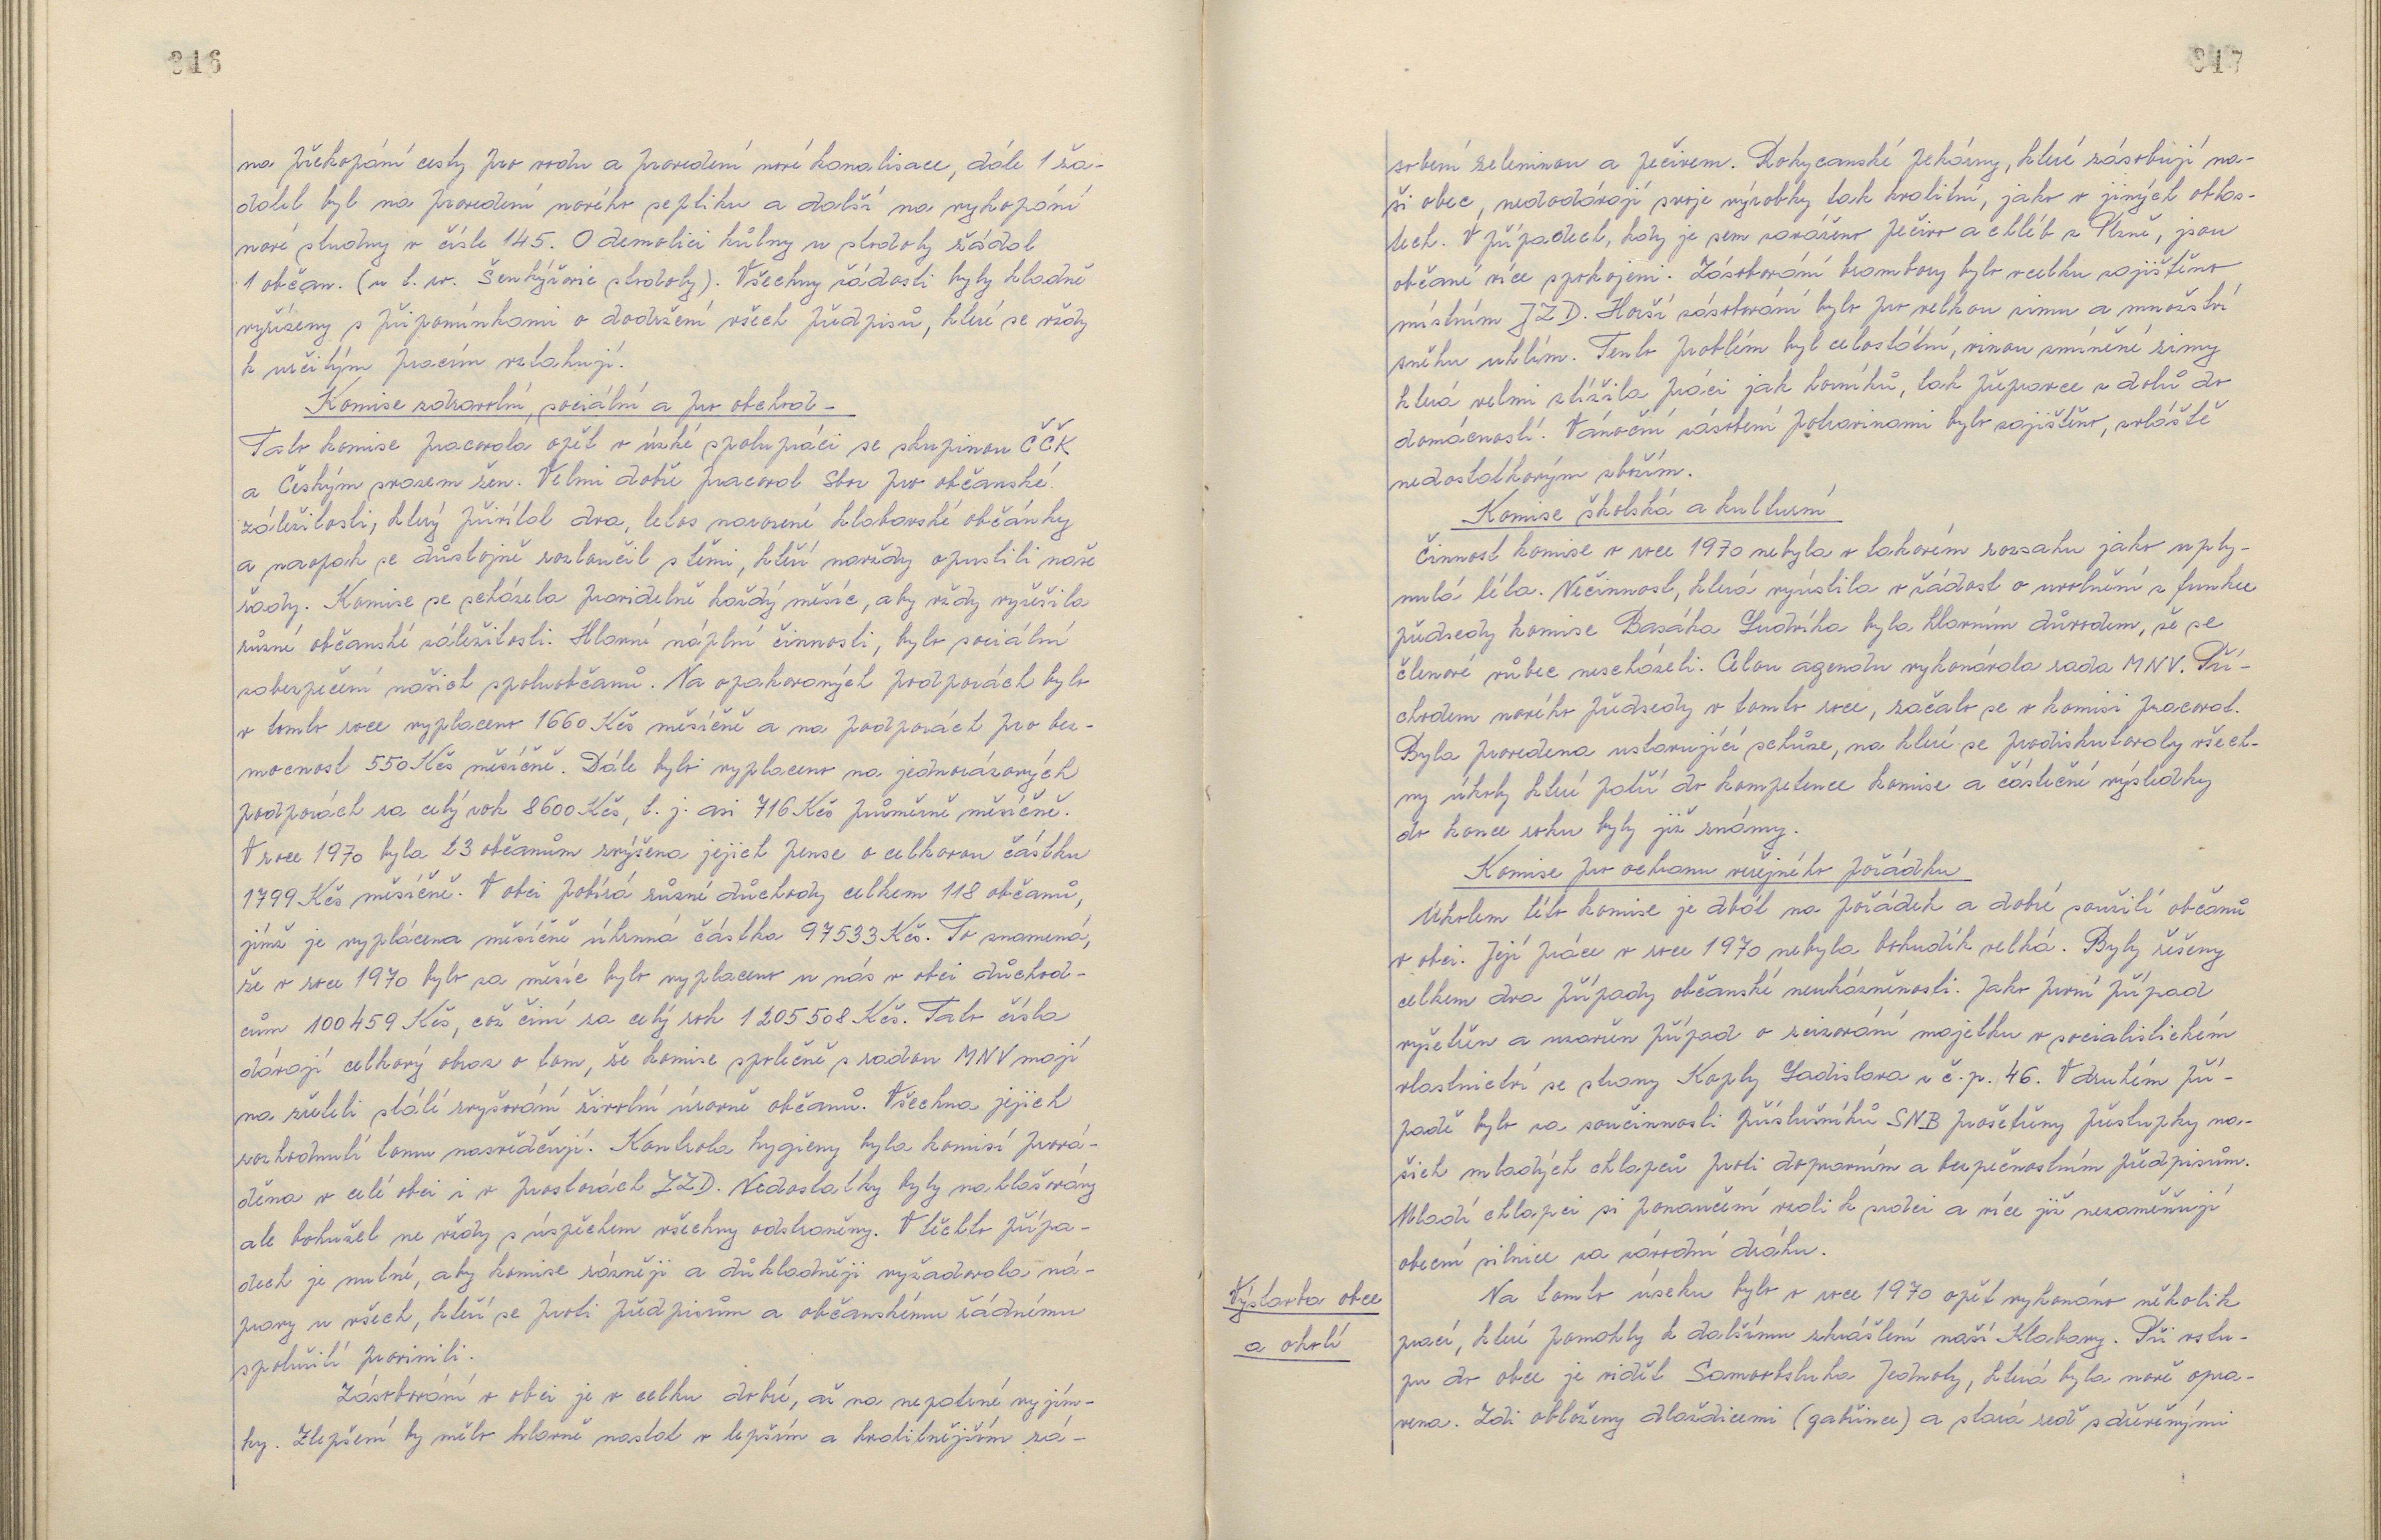 316
na překopání cesty pro vodu a provedení nové kanalisace, dále 1 ža-
datel byl na provedení nového septiku a další na vykopání
nové studny v čísle 145. O demolici kůlny u stodoly žádal
1 občan. (u t. zv. Šenkýřovic stodoly). Všechny žádosti byly kladně
vyřízeny s připomínkami o dodržení všech předpisů, které se vždy
k určitým pracím vztahují.
Komise zdravotní, sociální a pro obchod -
Tato komise pracovala opět v úzké spolupráci se skupinou ČČK
a Českým svazem žen. Velmi dobře pracoval Sbor pro občanské
záležitosti, který přivítal dva, letos narozené klabavské občánky
a naopak se důstojně rozloučil s těmi, kteří navždy opustili naše
řady. Komise se scházela pravidelně každý měsíc, aby vždy vyřešila
různé občanské záležitosti. Hlavní náplní činnosti, bylo sociální
zabezpečení našich spoluobčanů. Na opakovaných podporách bylo
v tomto roce vyplaceno 1660 Kčs měsíčně a na podporách pro bez-
mocnost 550 Kčs měsíčně. Dále bylo vyplaceno na jednorázových
podporách za celý rok 8600 Kčs, t. j. asi 716 Kčs průměrně měsíčně.
V roce 1970 byla 23 občanům zvýšena jejich pense o celkovou částku
1799 Kčs měsíčně. V obci pobírá různé důchody celkem 118 občanů,
jímž je vyplácena měsíčně úhrnná částka 97533 Kčs. To znamená,
že v roce 1970 bylo za měsíc bylo vyplaceno u nás v obci důchod-
cům 100459 Kčs, což činí za celý rok 1205508 Kčs. Tato čísla
dávají celkový obraz o tom, že komise společně s radou MNV mají
na zřeteli stálé zvyšování životní úrovně občanů. Všechna jejich
rozhodnutí tomu nasvědčují. Kontrola hygieny byla komisí prová-
děna v celé obci i v prostorách JZD. Nedostatky byly nahlašovány
ale bohužel ne vždy s úspěchem všechny odstraněny. V těchto přípa-
dech je nutné, aby komise rázněji a důkladněji vyžadovala ná-
pravy u všech, kteří se proti předpisům a občanskému řádnému
spolužití provinili.
Zásobování v obci je v celku dobré, až na nepatrné vyjím-
ky. Zlepšení by mělo hlavně nastat v lepším a kvalitnějším zá-
317
sobení zeleninou a pečivem. Rokycanské pekárny, které zásobují na-
ši obec, nedodávají svoje výrobky tak kvalitní, jako v jiných oblas-
tech. V případech, kdy je sem zaváženo pečivo a chléb z Plzně, jsou
občané více spokojeni. Zásobování brambory bylo vcelku zajištěno
místním JZD. Horší zásobování bylo pro velkou zimu a množství
sněhu uhlím. Tento problém byl celostátní, vinou zmíněné zimy
která velmi ztížila práci jak horníků, tak přepravce z dolů do
domácností. Vánoční zásobení potravinami bylo zajištěno, zvláště
nedostatkovým zbožím.
Komise školská a kulturní
Činnost komise v roce 1970 nebyla v takovém rozsahu jako uply-
nulá léta. Nečinnost, která vyústila v žádost o uvolnění z funkce
předsedy komise Basáka Ludvíka byla hlavním důvodem, že se
členové vůbec nescházeli. Celou agendu vykonávala rada MNV. Pří-
chodem nového předsedy v tomto roce, začalo se v komisi pracovat.
Byla provedena ustavující schůze, na které se prodiskutovaly všech-
ny úkoly které patří do kompetence komise a částečné výsledky
do konce roku byly již známy.
Komise pro ochranu veřejného pořádku
Úkolem této komise je dbát na pořádek a dobré soužití občanů
v obci. Její práce v roce 1970 nebyla bohudík velká. Byly řešeny
celkem dva případy občanské neukázněnosti. Jako první případ
vyšetřen a uzavřen případ o zcizování majetku v socialistickém
vlastnictví se strany Koply Ladislava z č. p. 46. V druhém pří-
padě bylo za součinnosti příslušníků SNB prošetřeny přestupky na-
šich mladých chlapců proti dopravním a bezpečnostním předpisům.
Mladí chlapci si ponaučení vzali k srdci a více již nezaměňují
obecní silnice za závodní dráhu.
Výstavba obce
a okolí
Na tomto úseku bylo v roce 1970 opět vykonáno několik
prací, které pomohly k dalšímu zkrášlení naší Klabavy. Při vstu-
pu do obce je vidět Samoobsluha Jednoty, která byla nově opra-
vena. Zdi obloženy dlaždicemi (gabřince) a stará zeď s dřevěnými